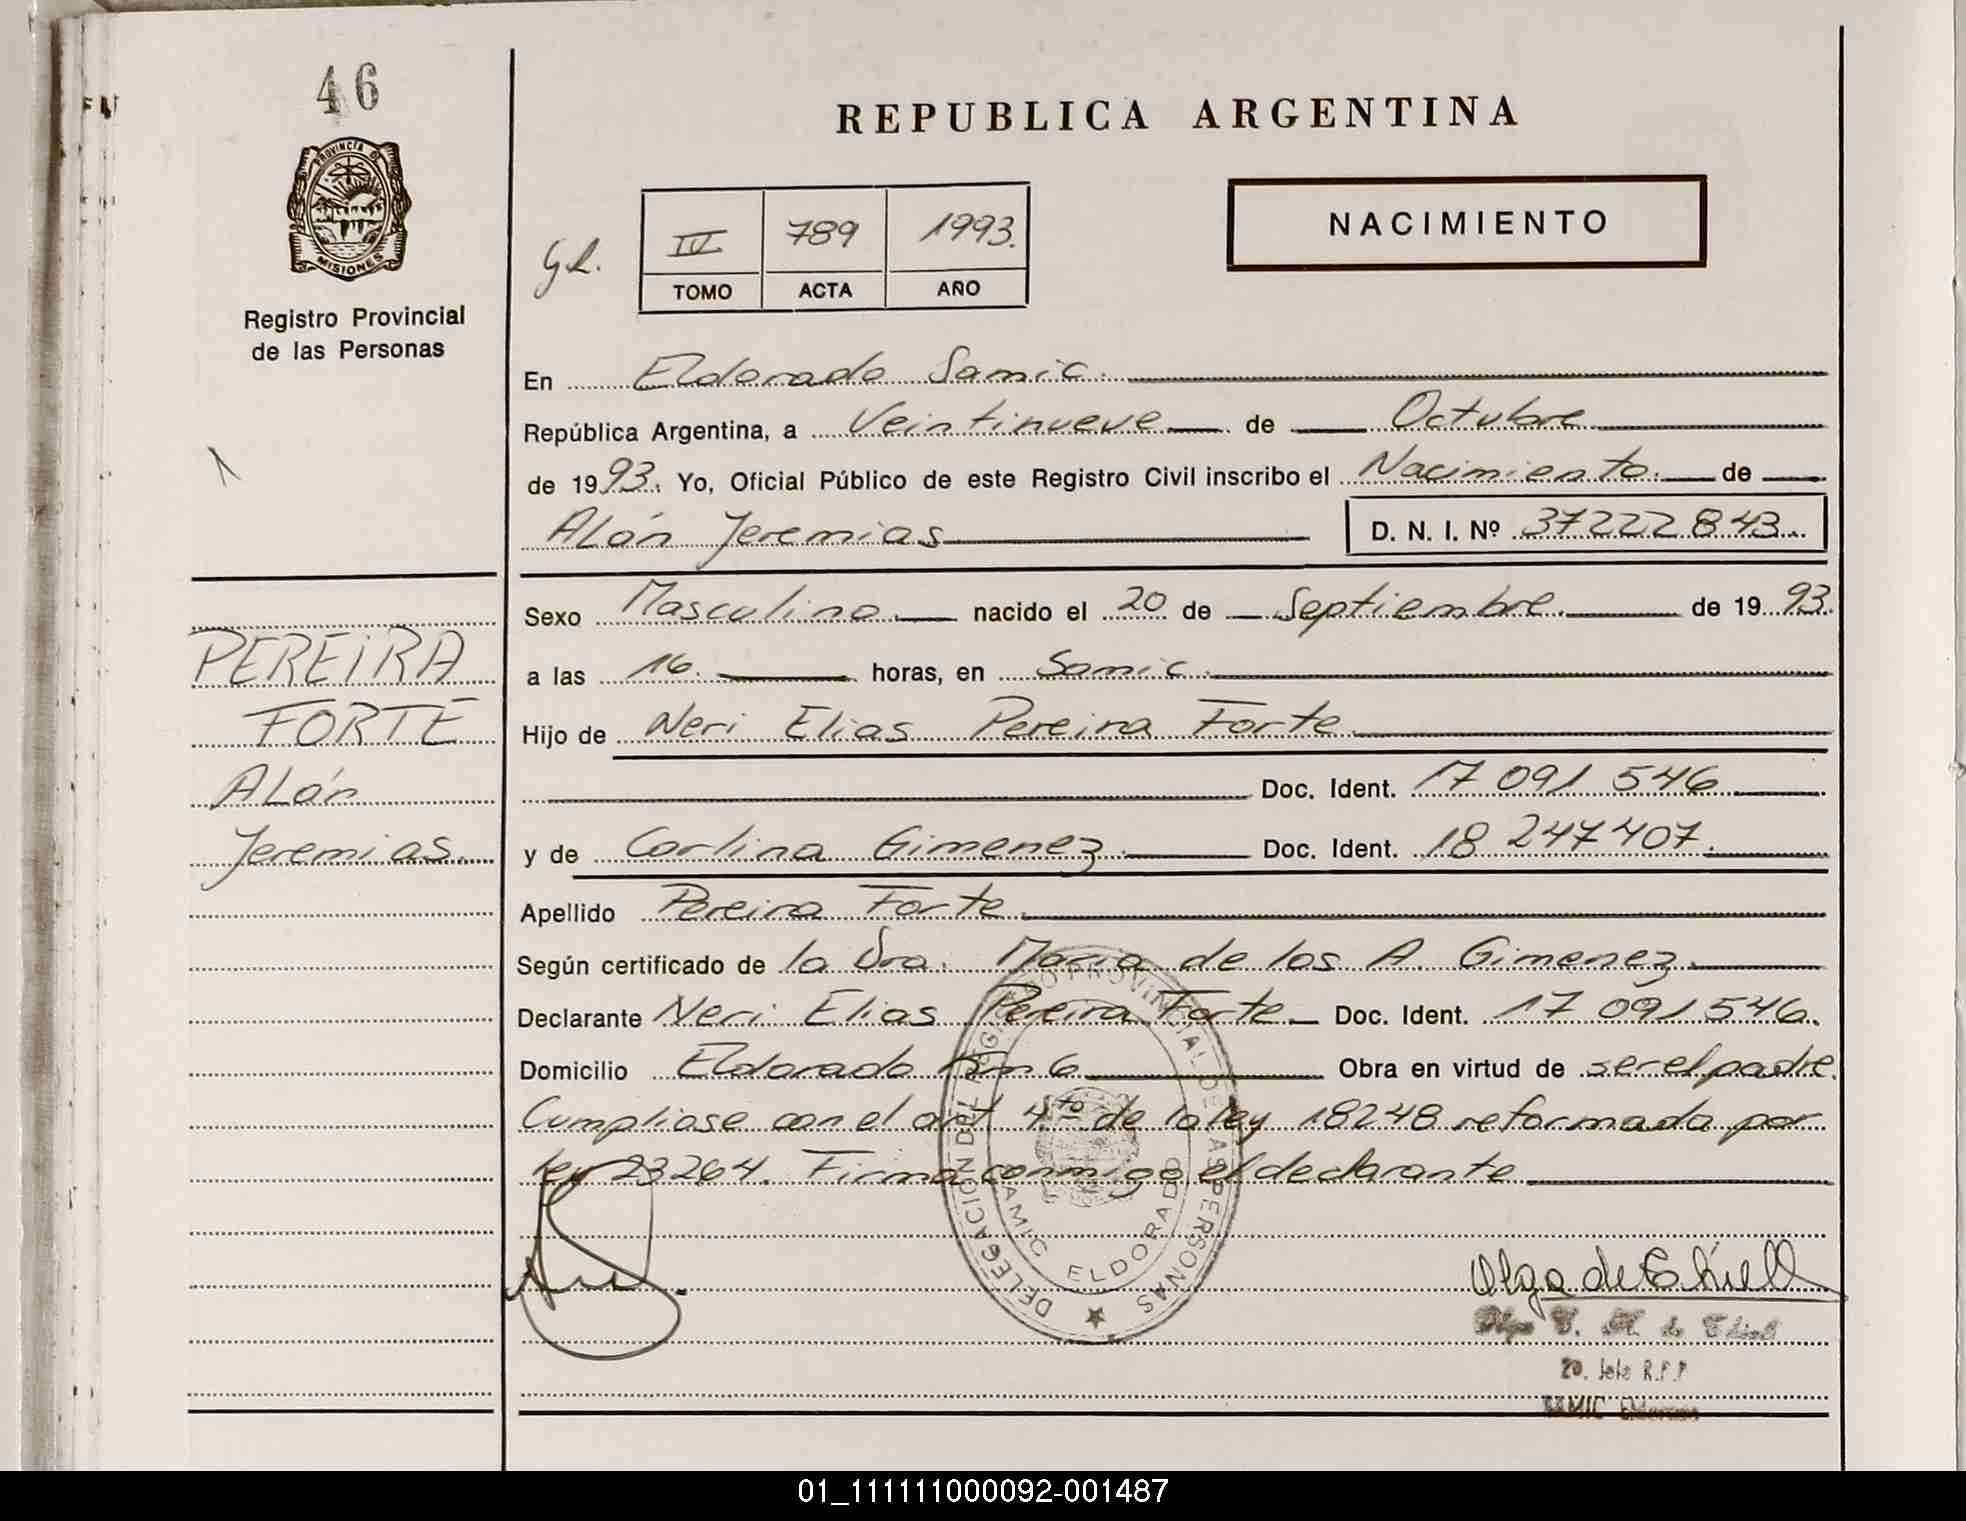 46
PROVINCIA DE
MISIONES
Registro Provincial
de las Personas
PEREIRA
FORTE
Alán
Jeremias.
REPUBLICA ARGENTINA
NACIMIENTO
IV 789 1993.
TOMO ACTA AÑO
En Eldorado Samic.
República Argentina, a Veintinueve de Octubre
de 1993. Yo, Oficial Público de este Registro Civil inscribo el Nacimiento. de
Alán Jeremias D. N. I. Nº 37222843..
Sexo Masculino. nacido el 20 de Septiembre. de 1993.
a las 16. horas, en Samic.
Hijo de Neri Elias Pereira Forte
Doc. Ident. 17 091 546
y de Carlina Gimenez. Doc. Ident. 18 247407.
Apellido Pereira Forte
Según certificado de la Dra. Maria de los A. Gimenez.
Declarante Neri Elias Pereira Forte. Doc. Ident. 17 091546.
Domicilio Eldorado Km 6 Obra en virtud de ser el padre.
Cumpliose con el art. 4to de la ley 18248 reformada por
ley 23264. Firma conmigo el declarante
DELEGACION DEL REGISTRO PROVINCIAL DE LAS PERSONAS
SAMIC ELDORADO
Olga de
Jefe R.P.P
SAMIC Eldorado
01_111111000092-001487